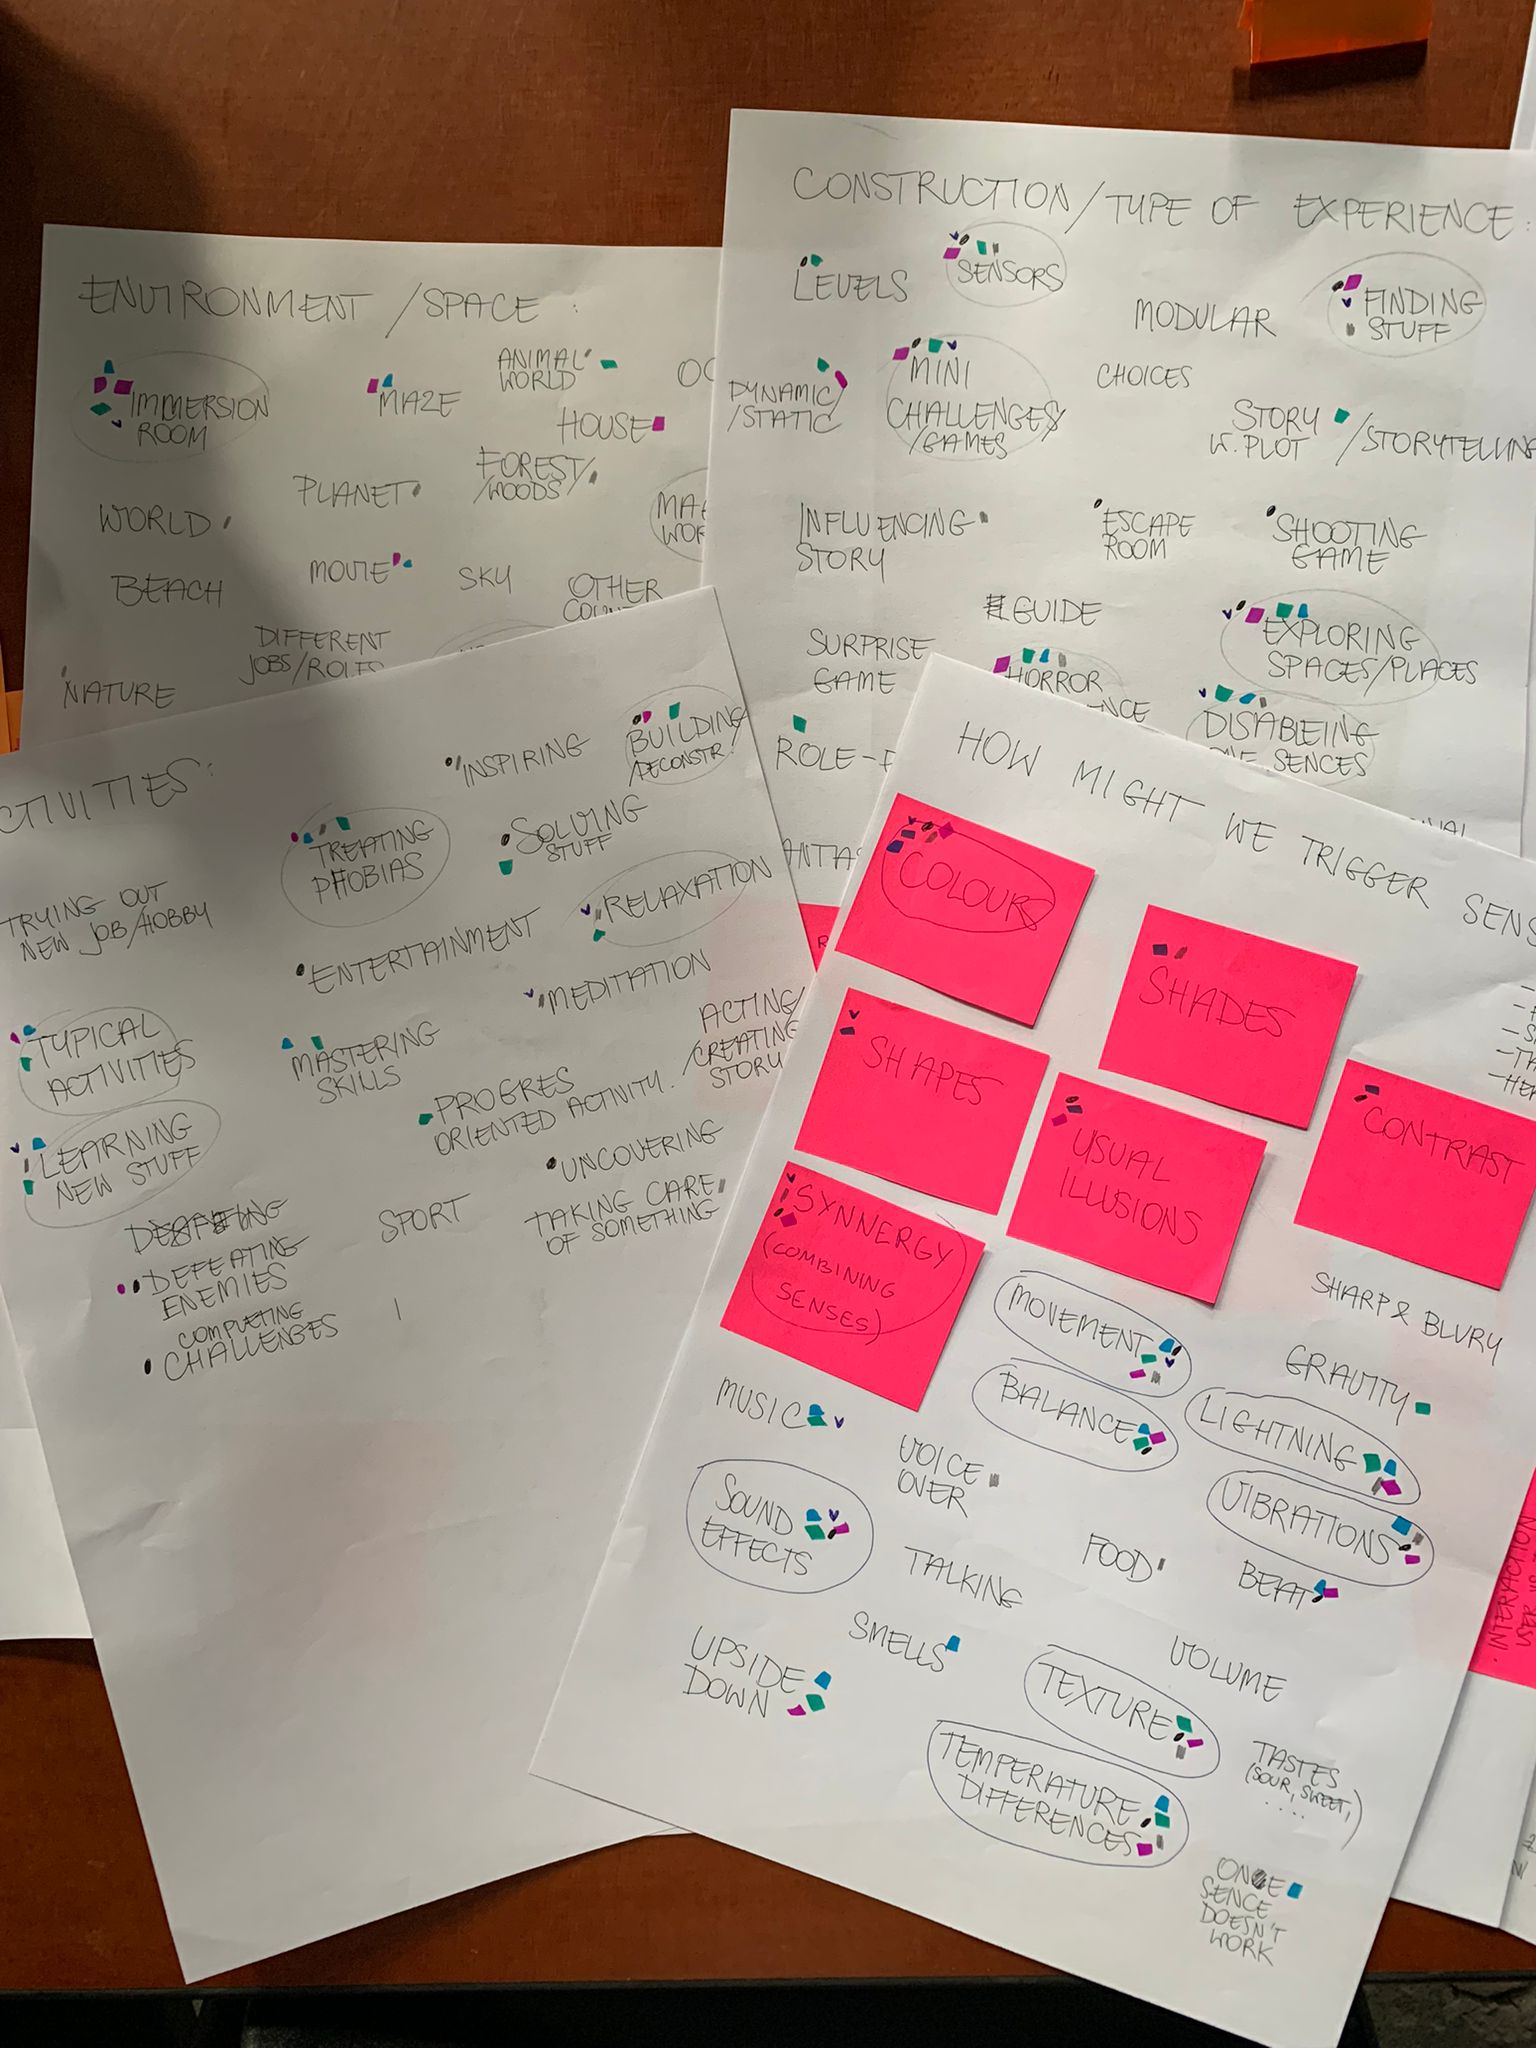 ENVIRONMENT / SPACE :
IMMERSION
ROOM
MAZE
ANIMAL
WORLD
HOUSE
PLANET
FOREST/
/WOODS
WORLD
BEACH
MOVIE
SKY
OTHER
DIFFERENT
JOBS/ROLES
NATURE
CONSTRUCTION / TYPE OF EXPERIENCE :
LEVELS
SENSORS
MODULAR
FINDING
STUFF
DYNAMIC/
/STATIC
MINI
CHALLENGES/
/GAMES
CHOICES
STORY /STORYTELLING
W. PLOT
INFLUENCING
STORY
ESCAPE
ROOM
SHOOTING
GAME
GUIDE
SURPRISE
GAME
EXPLORING
SPACES/PLACES
HORROR
DISABLEING
SENCES
ROLE-
CTIVITIES :
INSPIRING
BUILDING/
/DECONSTR.
TREATING
PHOBIAS
SOLVING
STUFF
TRYING OUT
NEW JOB/HOBBY
RELAXATION
ENTERTAINMENT
MEDITATION
TYPICAL
ACTIVITIES
MASTERING
SKILLS
ACTING/
/CREATING
STORY
PROGRES
ORIENTED ACTIVITY.
LEARNING
NEW STUFF
UNCOVERING
SPORT
TAKING CARE
OF SOMETHING
DEFEATING
ENEMIES
COMPLETING
CHALLENGES
HOW MIGHT WE TRIGGER SENS
COLOUR
SHADES
SHAPES
USUAL
ILLUSIONS
CONTRAST
SYNNERGY
(COMBINING
SENSES)
MOVEMENT
SHARP & BLURY
GRAVITY
BALANCE
LIGHTNING
MUSIC
VOICE
OVER
VIBRATIONS
SOUND
EFFECTS
TALKING
FOOD
BEAT
SMELLS
VOLUME
UPSIDE
DOWN
TEXTURE
TEMPERATURE
DIFFERENCES
TASTES
(SOUR, SWEET,
....)
ONE
SENCE
DOESN'T
WORK
INTERACTION